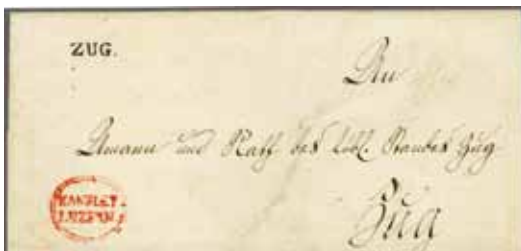 ZUG.
An
Amann und Rath des Löbl. Standes Zug
KANZLEY
LUZERN
Zug